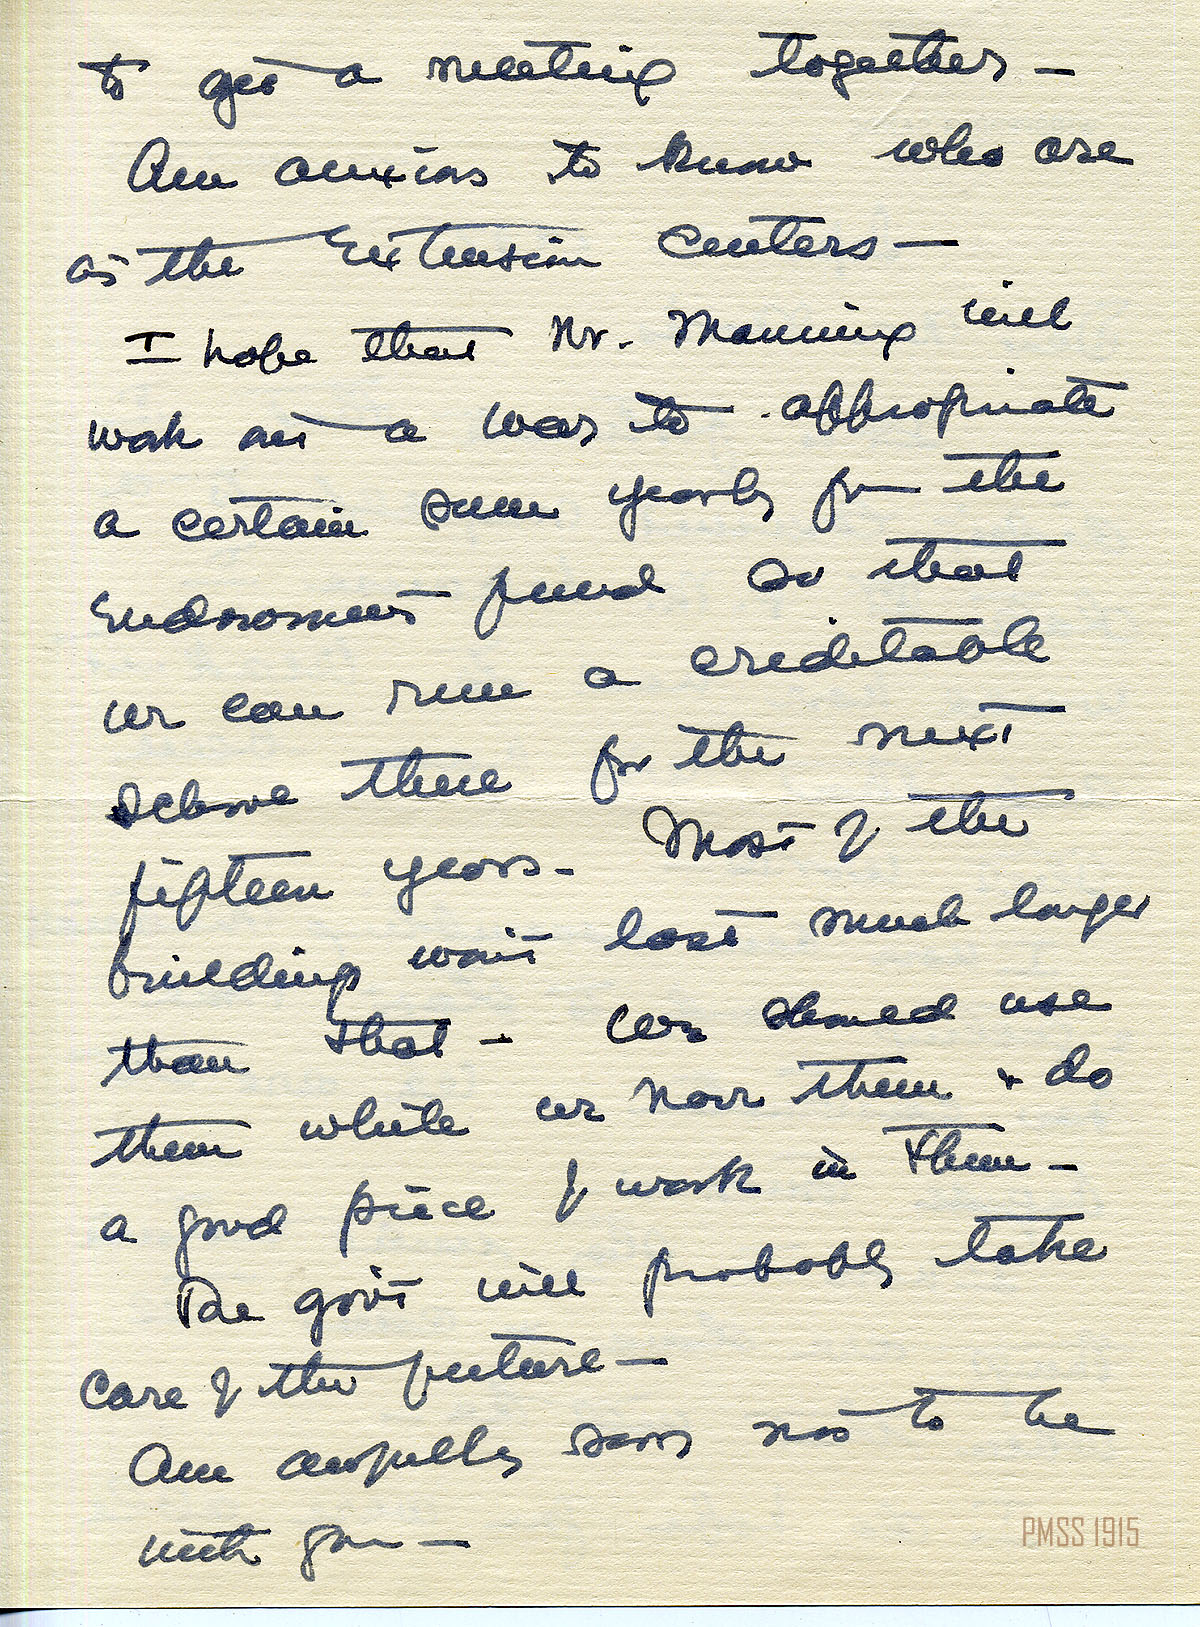 to get a meeting together —
Am anxious to know who are
at the Extension Centers —
I hope that Mr. Manning will
work out a way to appropriate
a certain sum yearly from the
Endowment fund so that
we can run a creditable
school there for the next
fifteen years — Most of the
buildings won't last much longer
than that — We should use
them while we have them & do
a good piece of work in them —
The gov't will probably take
care of the future —
Am awfully sorry not to be
with you —
PMSS 1915